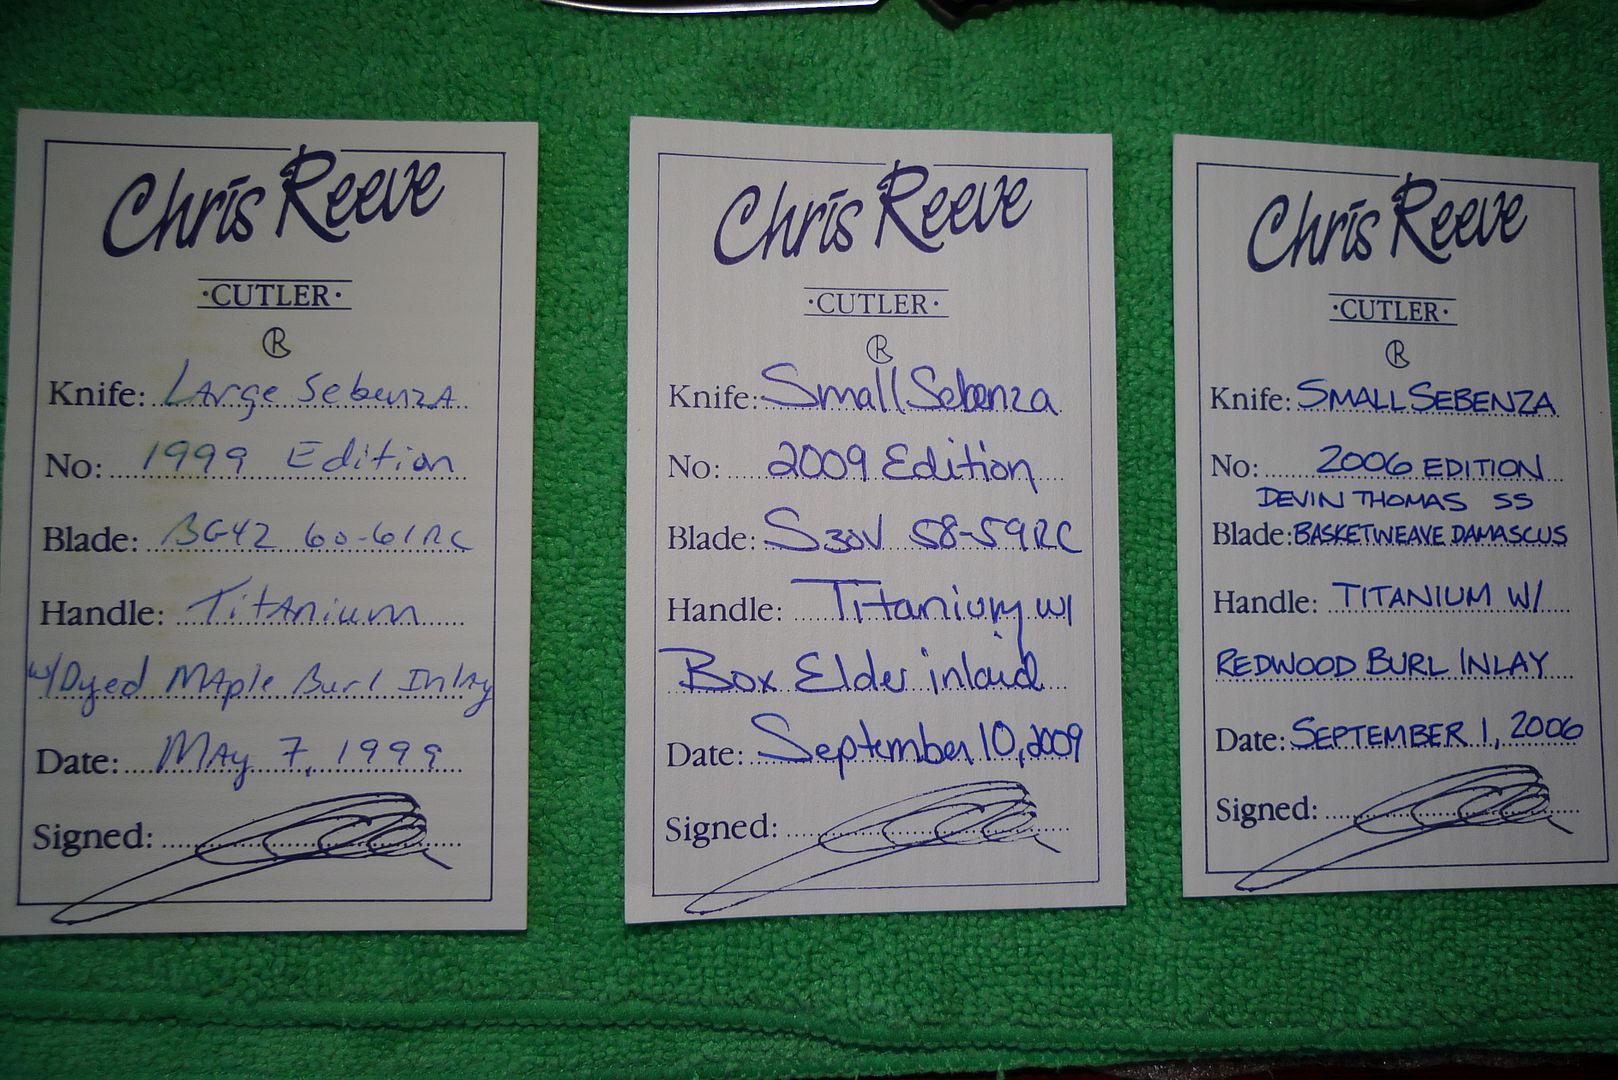 Chris Reeve
·CUTLER·
R
Knife: LArge SebenzA
No: 1999 Edition
Blade: BG42 60-61RC
Handle: TitAnium
w/Dyed MAple Burl Inlay
Date: MAy 7, 1999
Signed:
Chris Reeve
·CUTLER·
R
Knife: Small Sebenza
No: 2009 Edition
Blade: S30V 58-59RC
Handle: Titanium w/
Box Elder inlaid
Date: September 10, 2009
Signed:
Chris Reeve
·CUTLER·
R
Knife: SMALL SEBENZA
No: 2006 EDITION
DEVIN THOMAS SS
Blade: BASKETWEAVE DAMASCUS
Handle: TITANIUM W/
REDWOOD BURL INLAY
Date: SEPTEMBER 1, 2006
Signed: